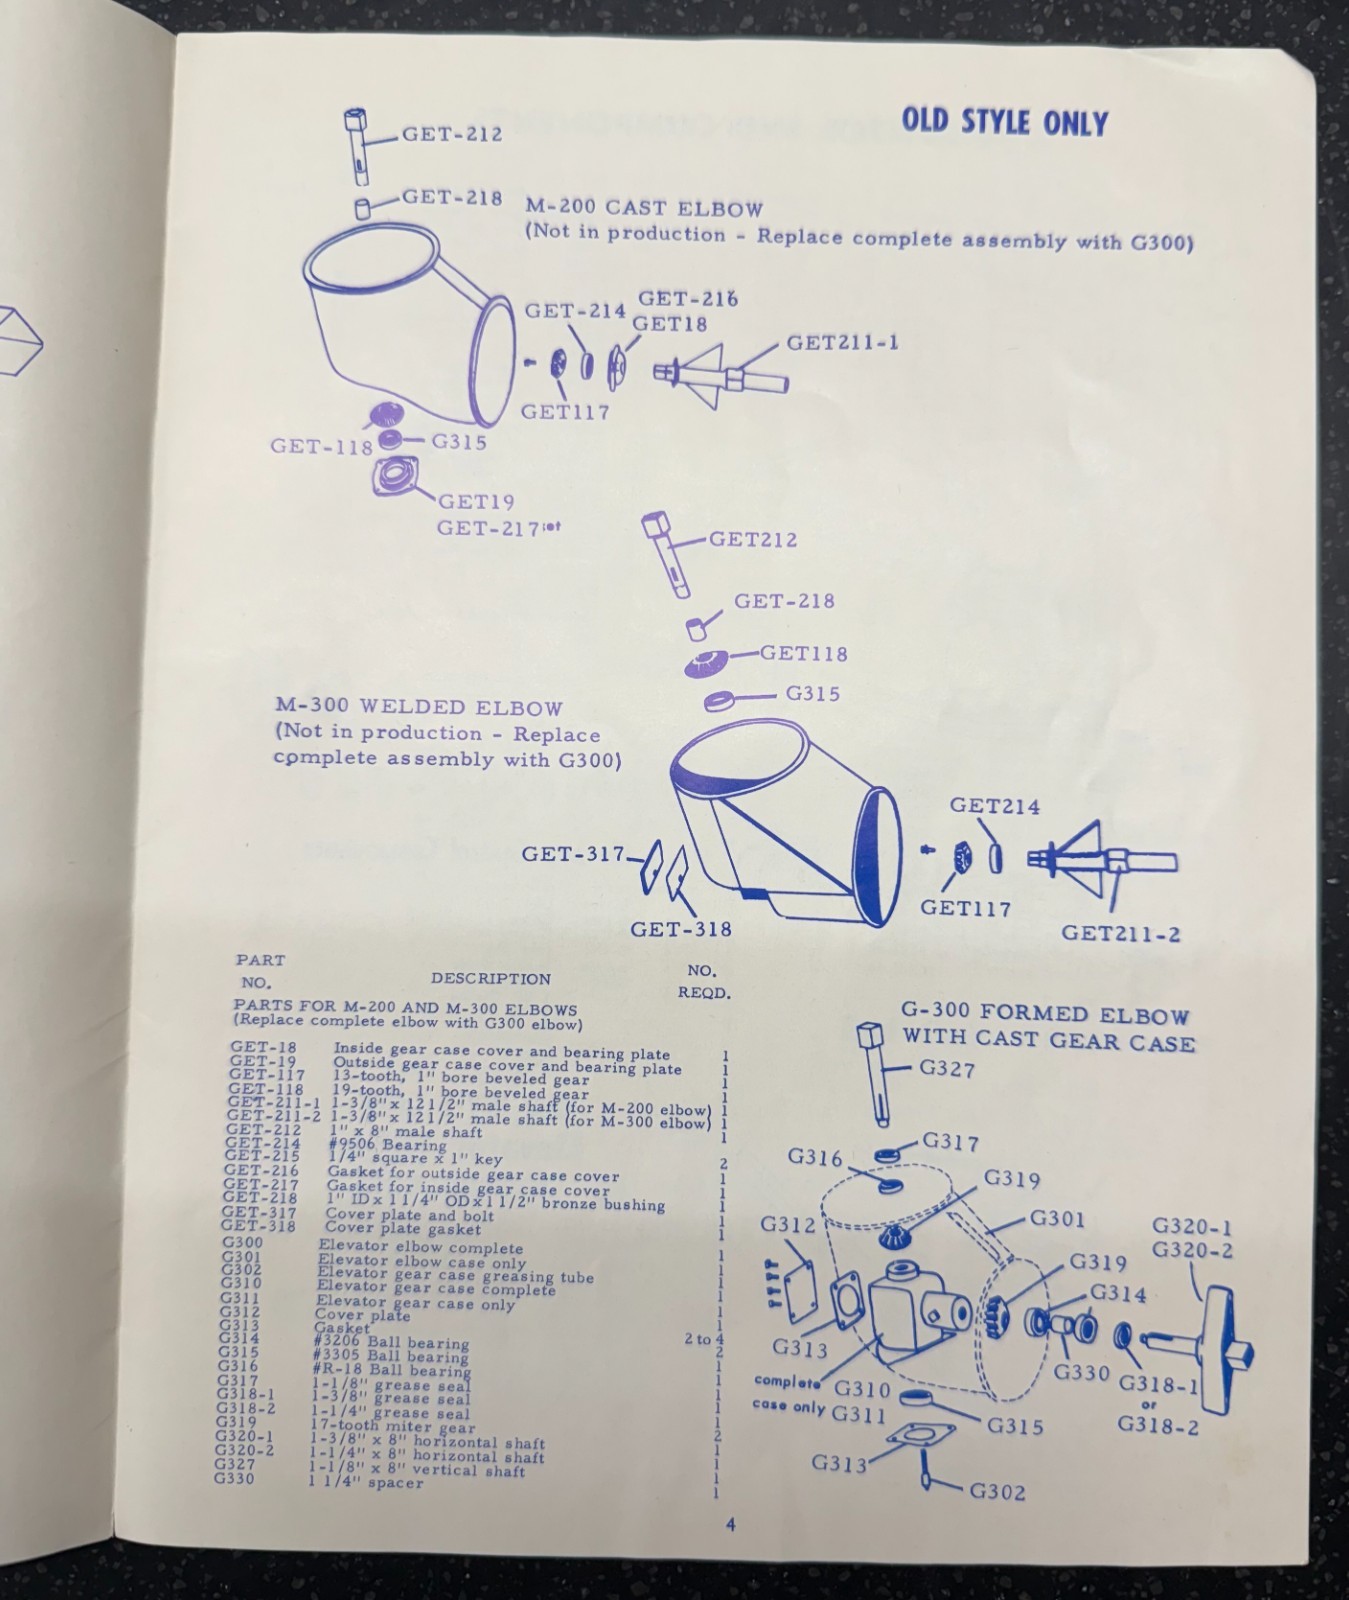 OLD STYLE ONLY
GET-212
GET-218
M-200 CAST ELBOW
(Not in production - Replace complete assembly with G300)
GET-216
GET-214
GET18
GET211-1
GET117
GET-118
G315
GET19
GET-217
GET212
GET-218
GET118
G315
M-300 WELDED ELBOW
(Not in production - Replace
complete assembly with G300)
GET214
GET-317
GET117
GET-318
GET211-2
PART
NO.
DESCRIPTION
NO.
REQD.
PARTS FOR M-200 AND M-300 ELBOWS
(Replace complete elbow with G300 elbow)
GET-18 Inside gear case cover and bearing plate 1
GET-19 Outside gear case cover and bearing plate 1
GET-117 13-tooth, 1" bore beveled gear 1
GET-118 19-tooth, 1" bore beveled gear 1
GET-211-1 1-3/8" x 12 1/2" male shaft (for M-200 elbow) 1
GET-211-2 1-3/8" x 12 1/2" male shaft (for M-300 elbow) 1
GET-212 1" x 8" male shaft 1
GET-214 #9506 Bearing
GET-215 1/4" square x 1" key 2
GET-216 Gasket for outside gear case cover 1
GET-217 Gasket for inside gear case cover 1
GET-218 1" ID x 1 1/4" OD x 1 1/2" bronze bushing 1
GET-317 Cover plate and bolt 1
GET-318 Cover plate gasket 1
G300 Elevator elbow complete 1
G301 Elevator elbow case only 1
G302 Elevator gear case greasing tube 1
G310 Elevator gear case complete 1
G311 Elevator gear case only 1
G312 Cover plate 1
G313 Gasket 2 to 4
G314 #3206 Ball bearing 2
G315 #3305 Ball bearing 1
G316 #R-18 Ball bearing 1
G317 1-1/8" grease seal 1
G318-1 1-3/8" grease seal 1
G318-2 1-1/4" grease seal 1
G319 17-tooth miter gear 2
G320-1 1-3/8" x 8" horizontal shaft 1
G320-2 1-1/4" x 8" horizontal shaft 1
G327 1-1/8" x 8" vertical shaft 1
G330 1 1/4" spacer 1
G-300 FORMED ELBOW
WITH CAST GEAR CASE
G327
G317
G316
G319
G301
G312
G320-1
G320-2
G319
G314
G313
G330
G318-1
or
G318-2
complete G310
case only G311
G315
G313
G302
4